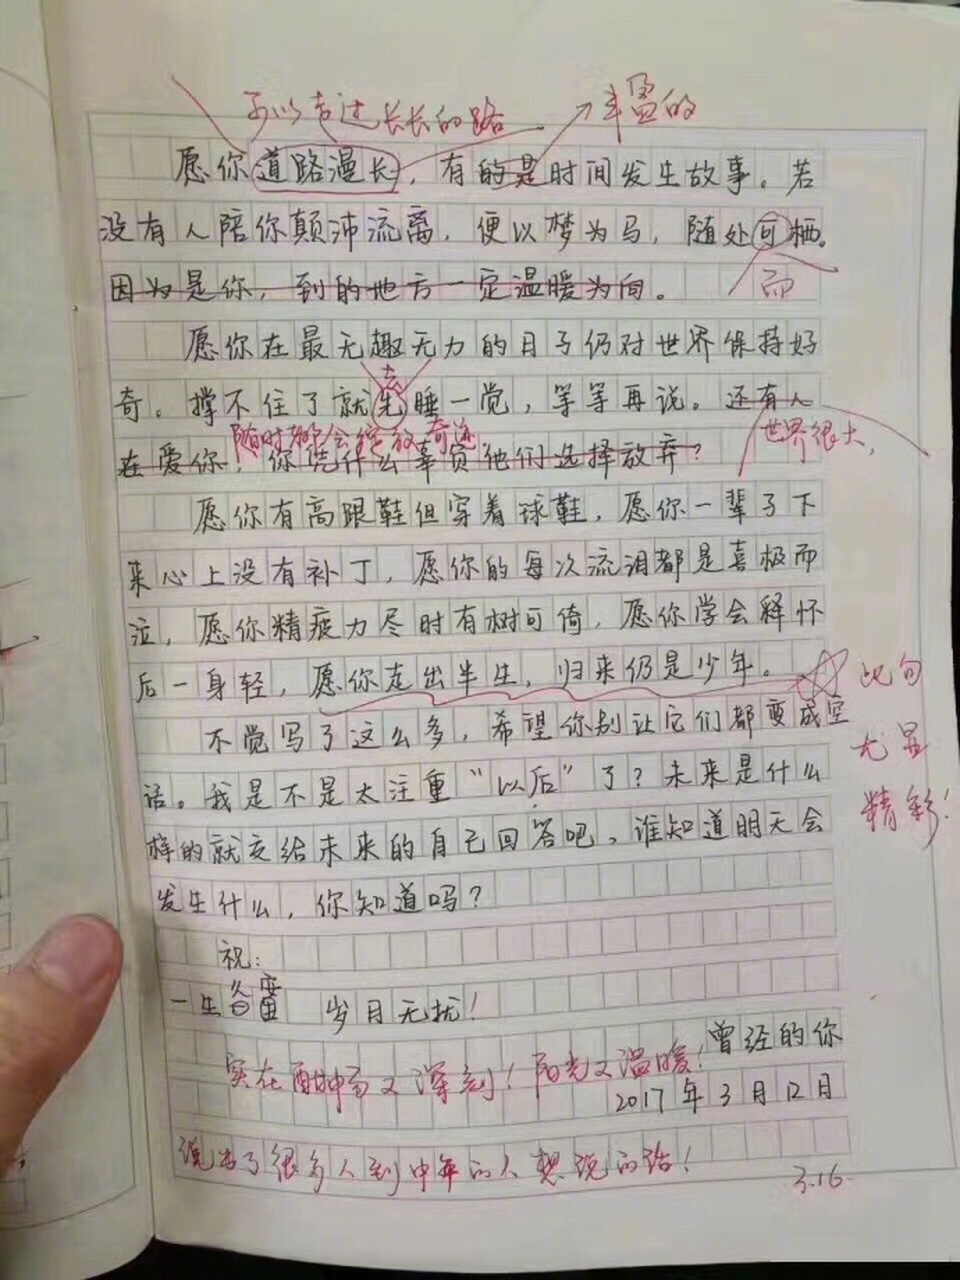 可以走过长长的路
丰盈的
愿你道路漫长,有的是时间发生故事。若
没有人陪你颠沛流离,便以梦为马,随处可栖。
因为是你,到的地方一定温暖为向。
而
愿你在最无趣无力的日子仍对世界保持好
去
奇。撑不住了就先睡一觉,等等再说。还有人
随时都会绽放奇迹
世界很大,
在爱你,你凭什么辜负他们选择放弃?
愿你有高跟鞋但穿着球鞋,愿你一辈子下
来心上没有补丁,愿你的每次流泪都是喜极而
泣,愿你精疲力尽时有树可倚,愿你学会释怀
后一身轻,愿你走出半生,归来仍是少年。
此句
尤显
精彩!
不觉写了这么多,希望你别让它们都变成空
话。我是不是太注重“以后”了?未来是什么
样的就交给未来的自己回答吧,谁知道明天会
发生什么,你知道吗?
祝:
一生 岁月无扰!
曾经的你
实在酣畅又深刻!阳光又温暖!
2017年3月12日
说出了很多人到中年的人想说的话!
3.16